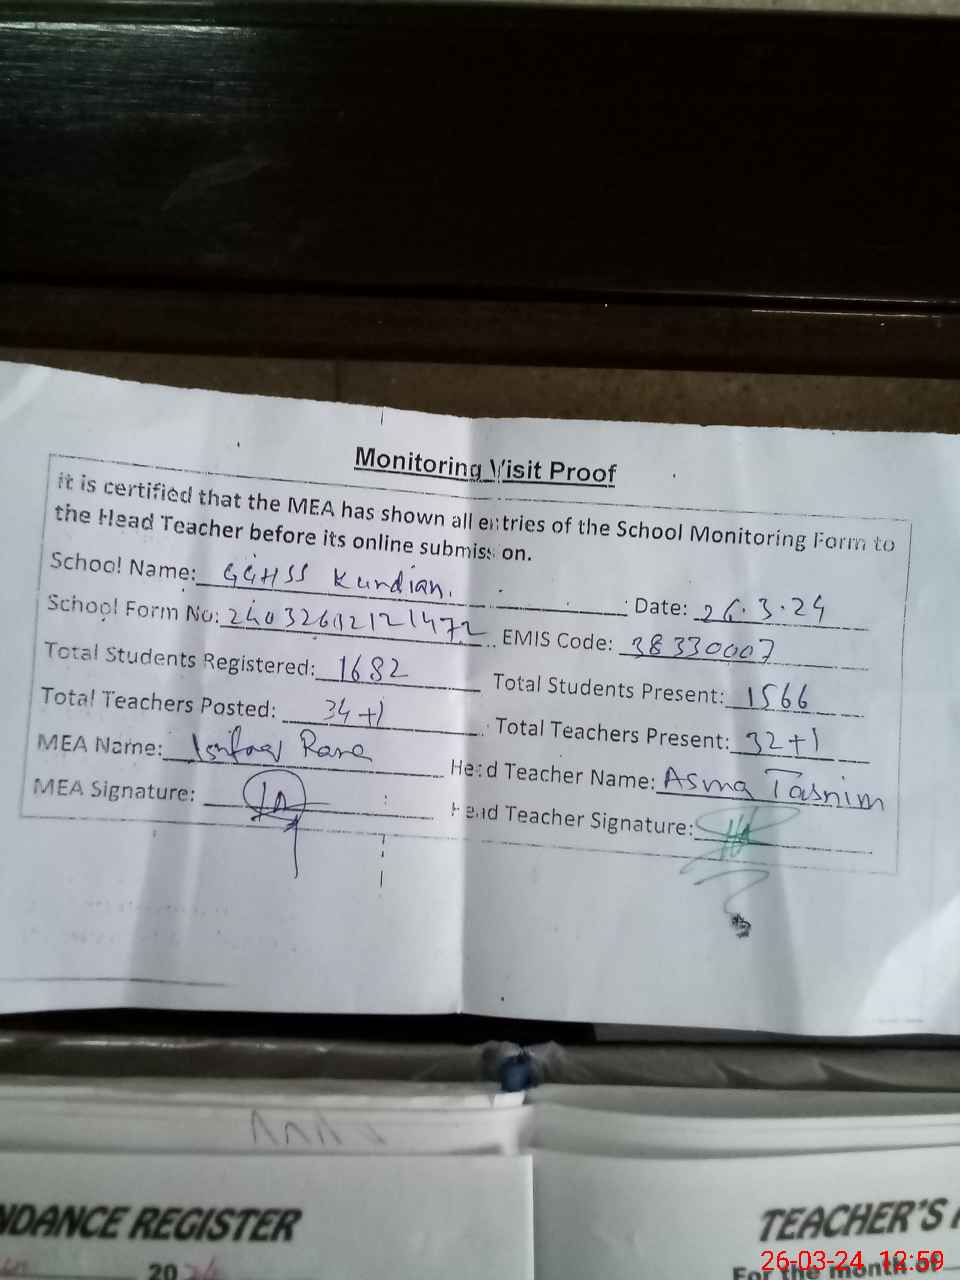 Monitoring Visit Proof
it is certified that the MEA has shown all entries of the School Monitoring Form to
the Head Teacher before its online submission.
School Name: GGHSS Kundian. Date: 26.3.24
School Form No: 240326112121472 EMIS Code: 38330007
Total Students Registered: 1682 Total Students Present: 1566
Total Teachers Posted: 34+1 Total Teachers Present: 32+1
MEA Name: Ishfaq Rana Head Teacher Name: Asma Tasnim
MEA Signature: Head Teacher Signature:
NDANCE REGISTER TEACHER'S
20 For the month of
26-03-24 12:59